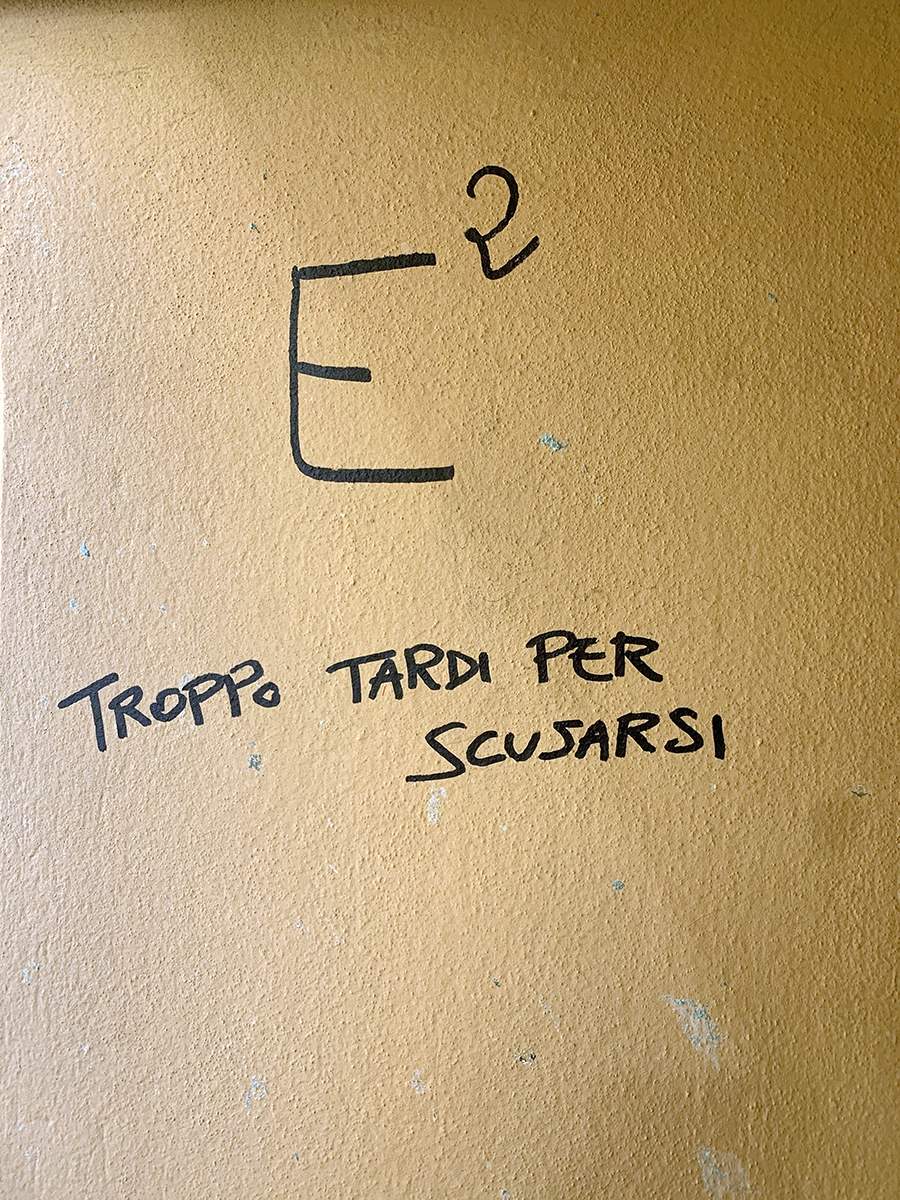 E²
TROPPO TARDI PER
SCUSARSI